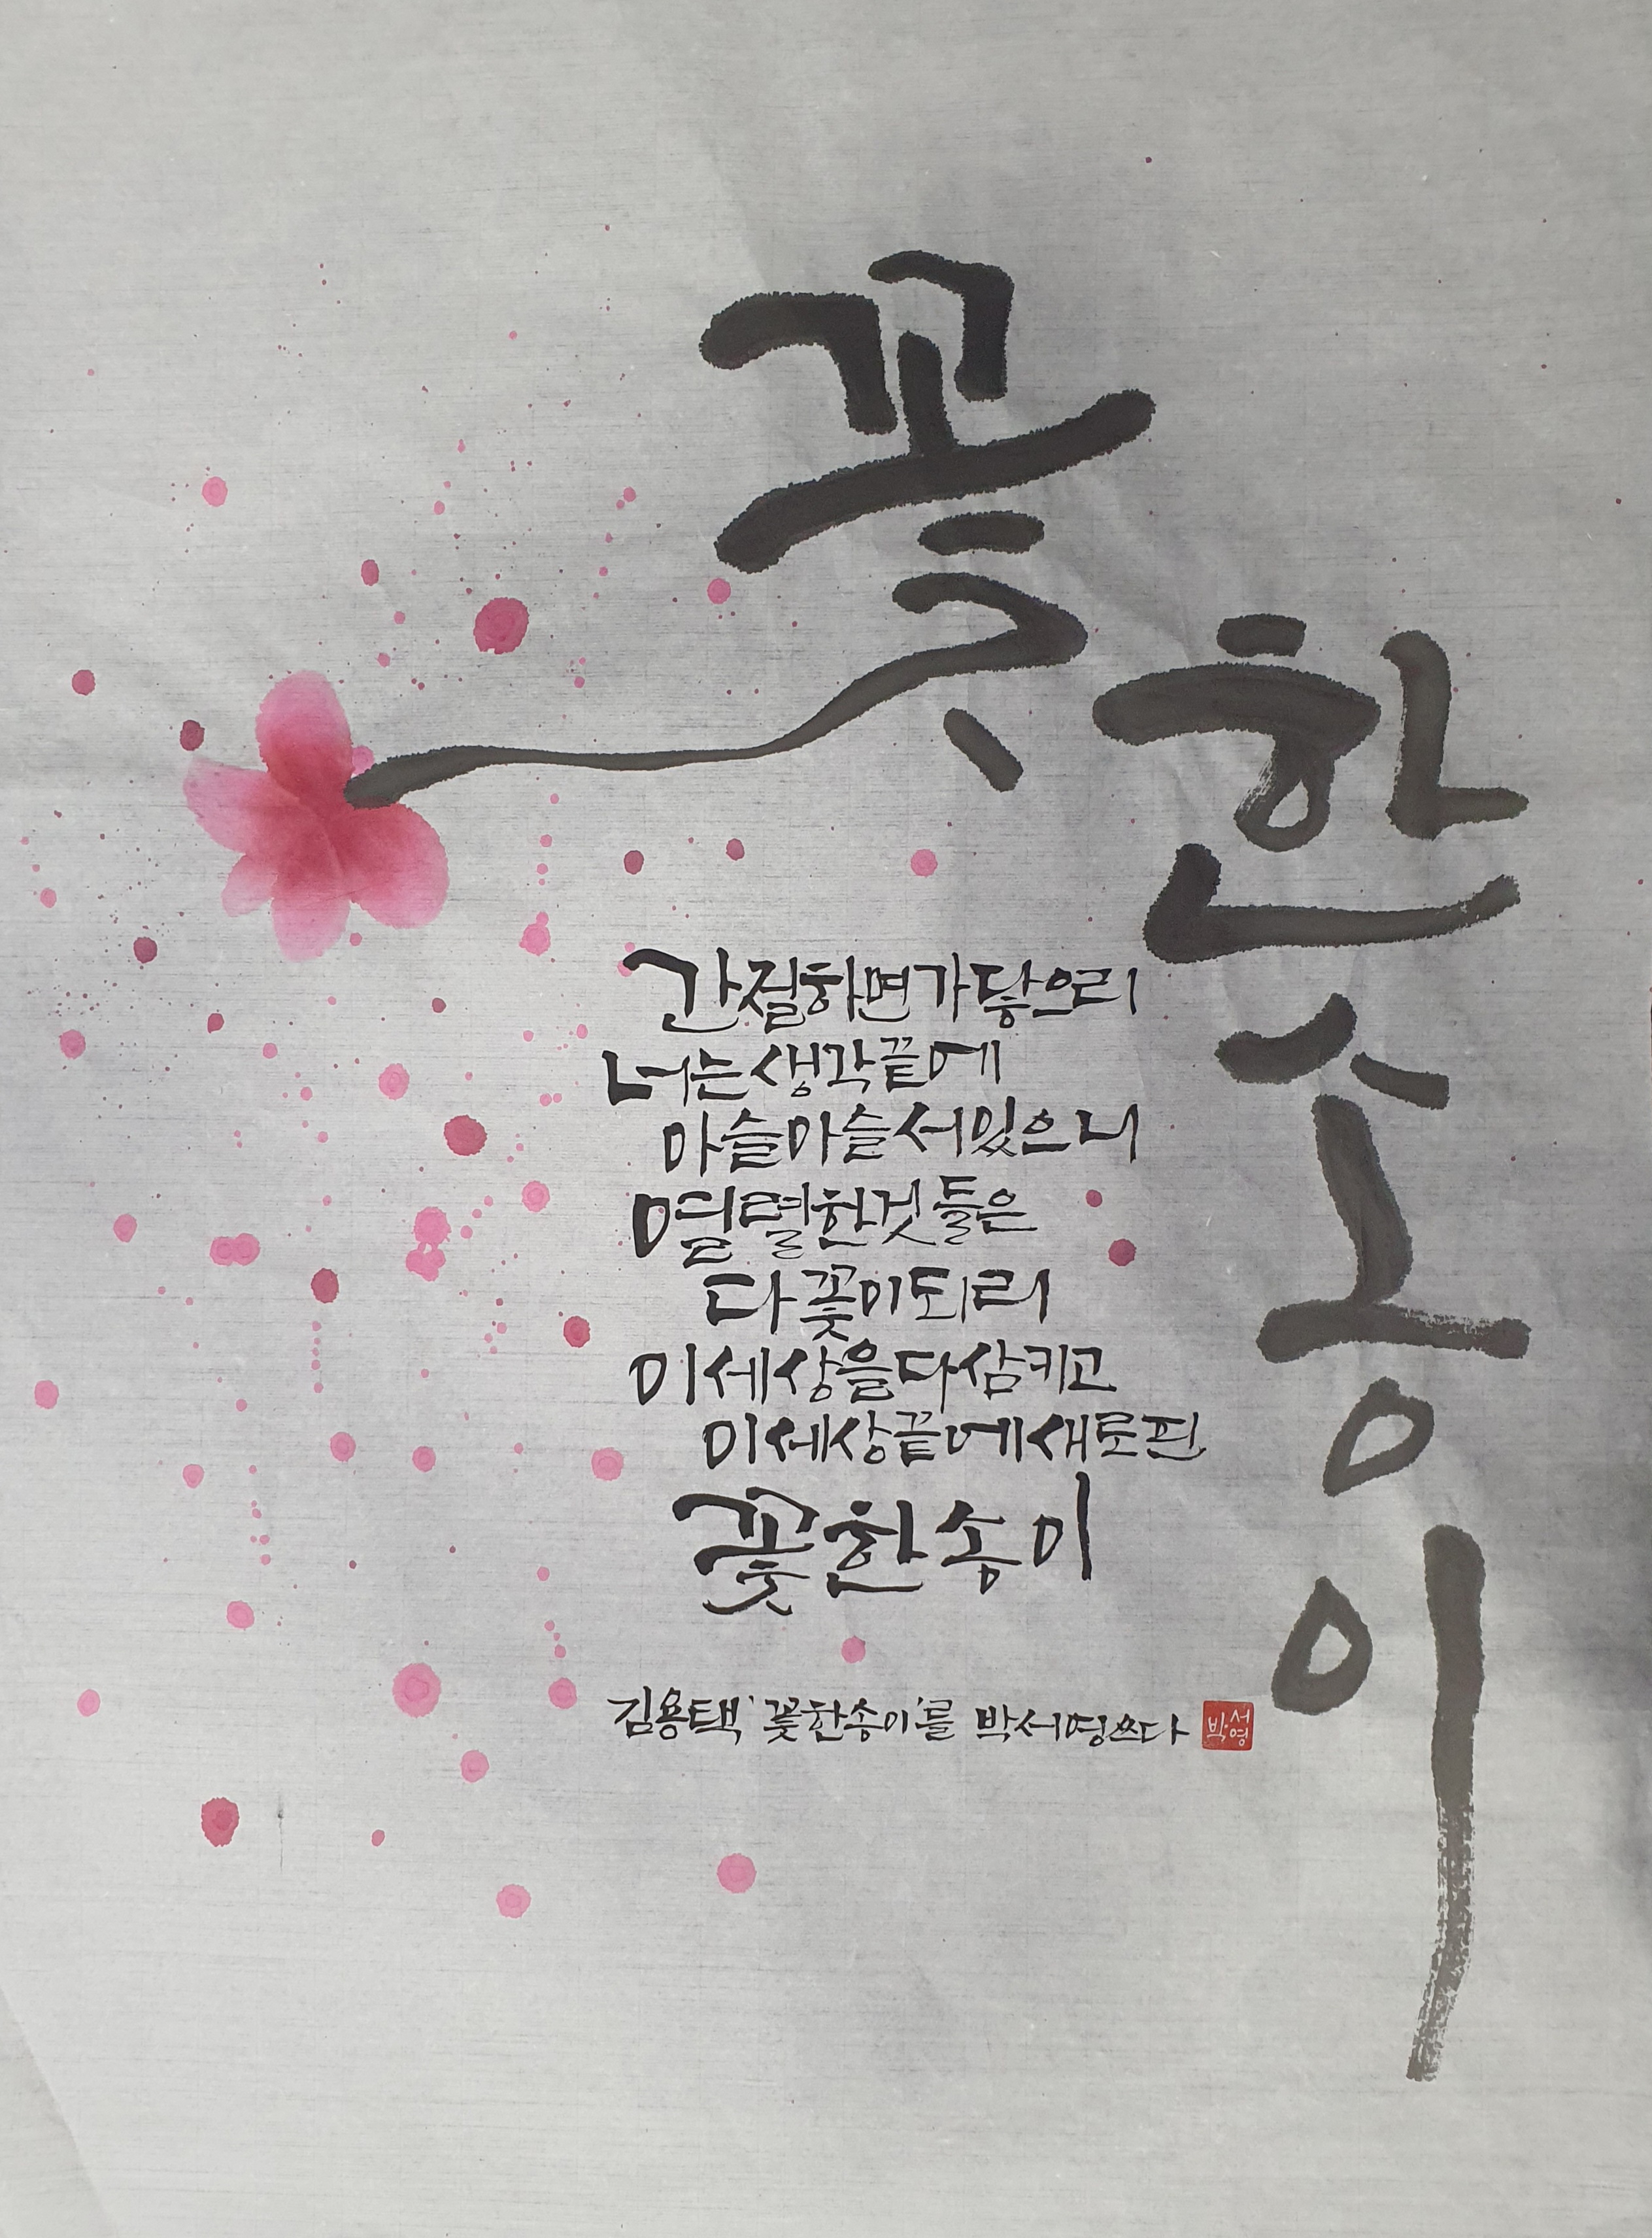 꽃 한 송이
간절하면 가 닿으리
너는 생각 끝에
아슬아슬 서 있으니
열렬한 것들은
다 꽃이 되리
이 세상을 다 삼키고
이 세상 끝에 새로 핀
꽃 한 송이
김용택 '꽃 한 송이'를 박서영 쓰다
박서영